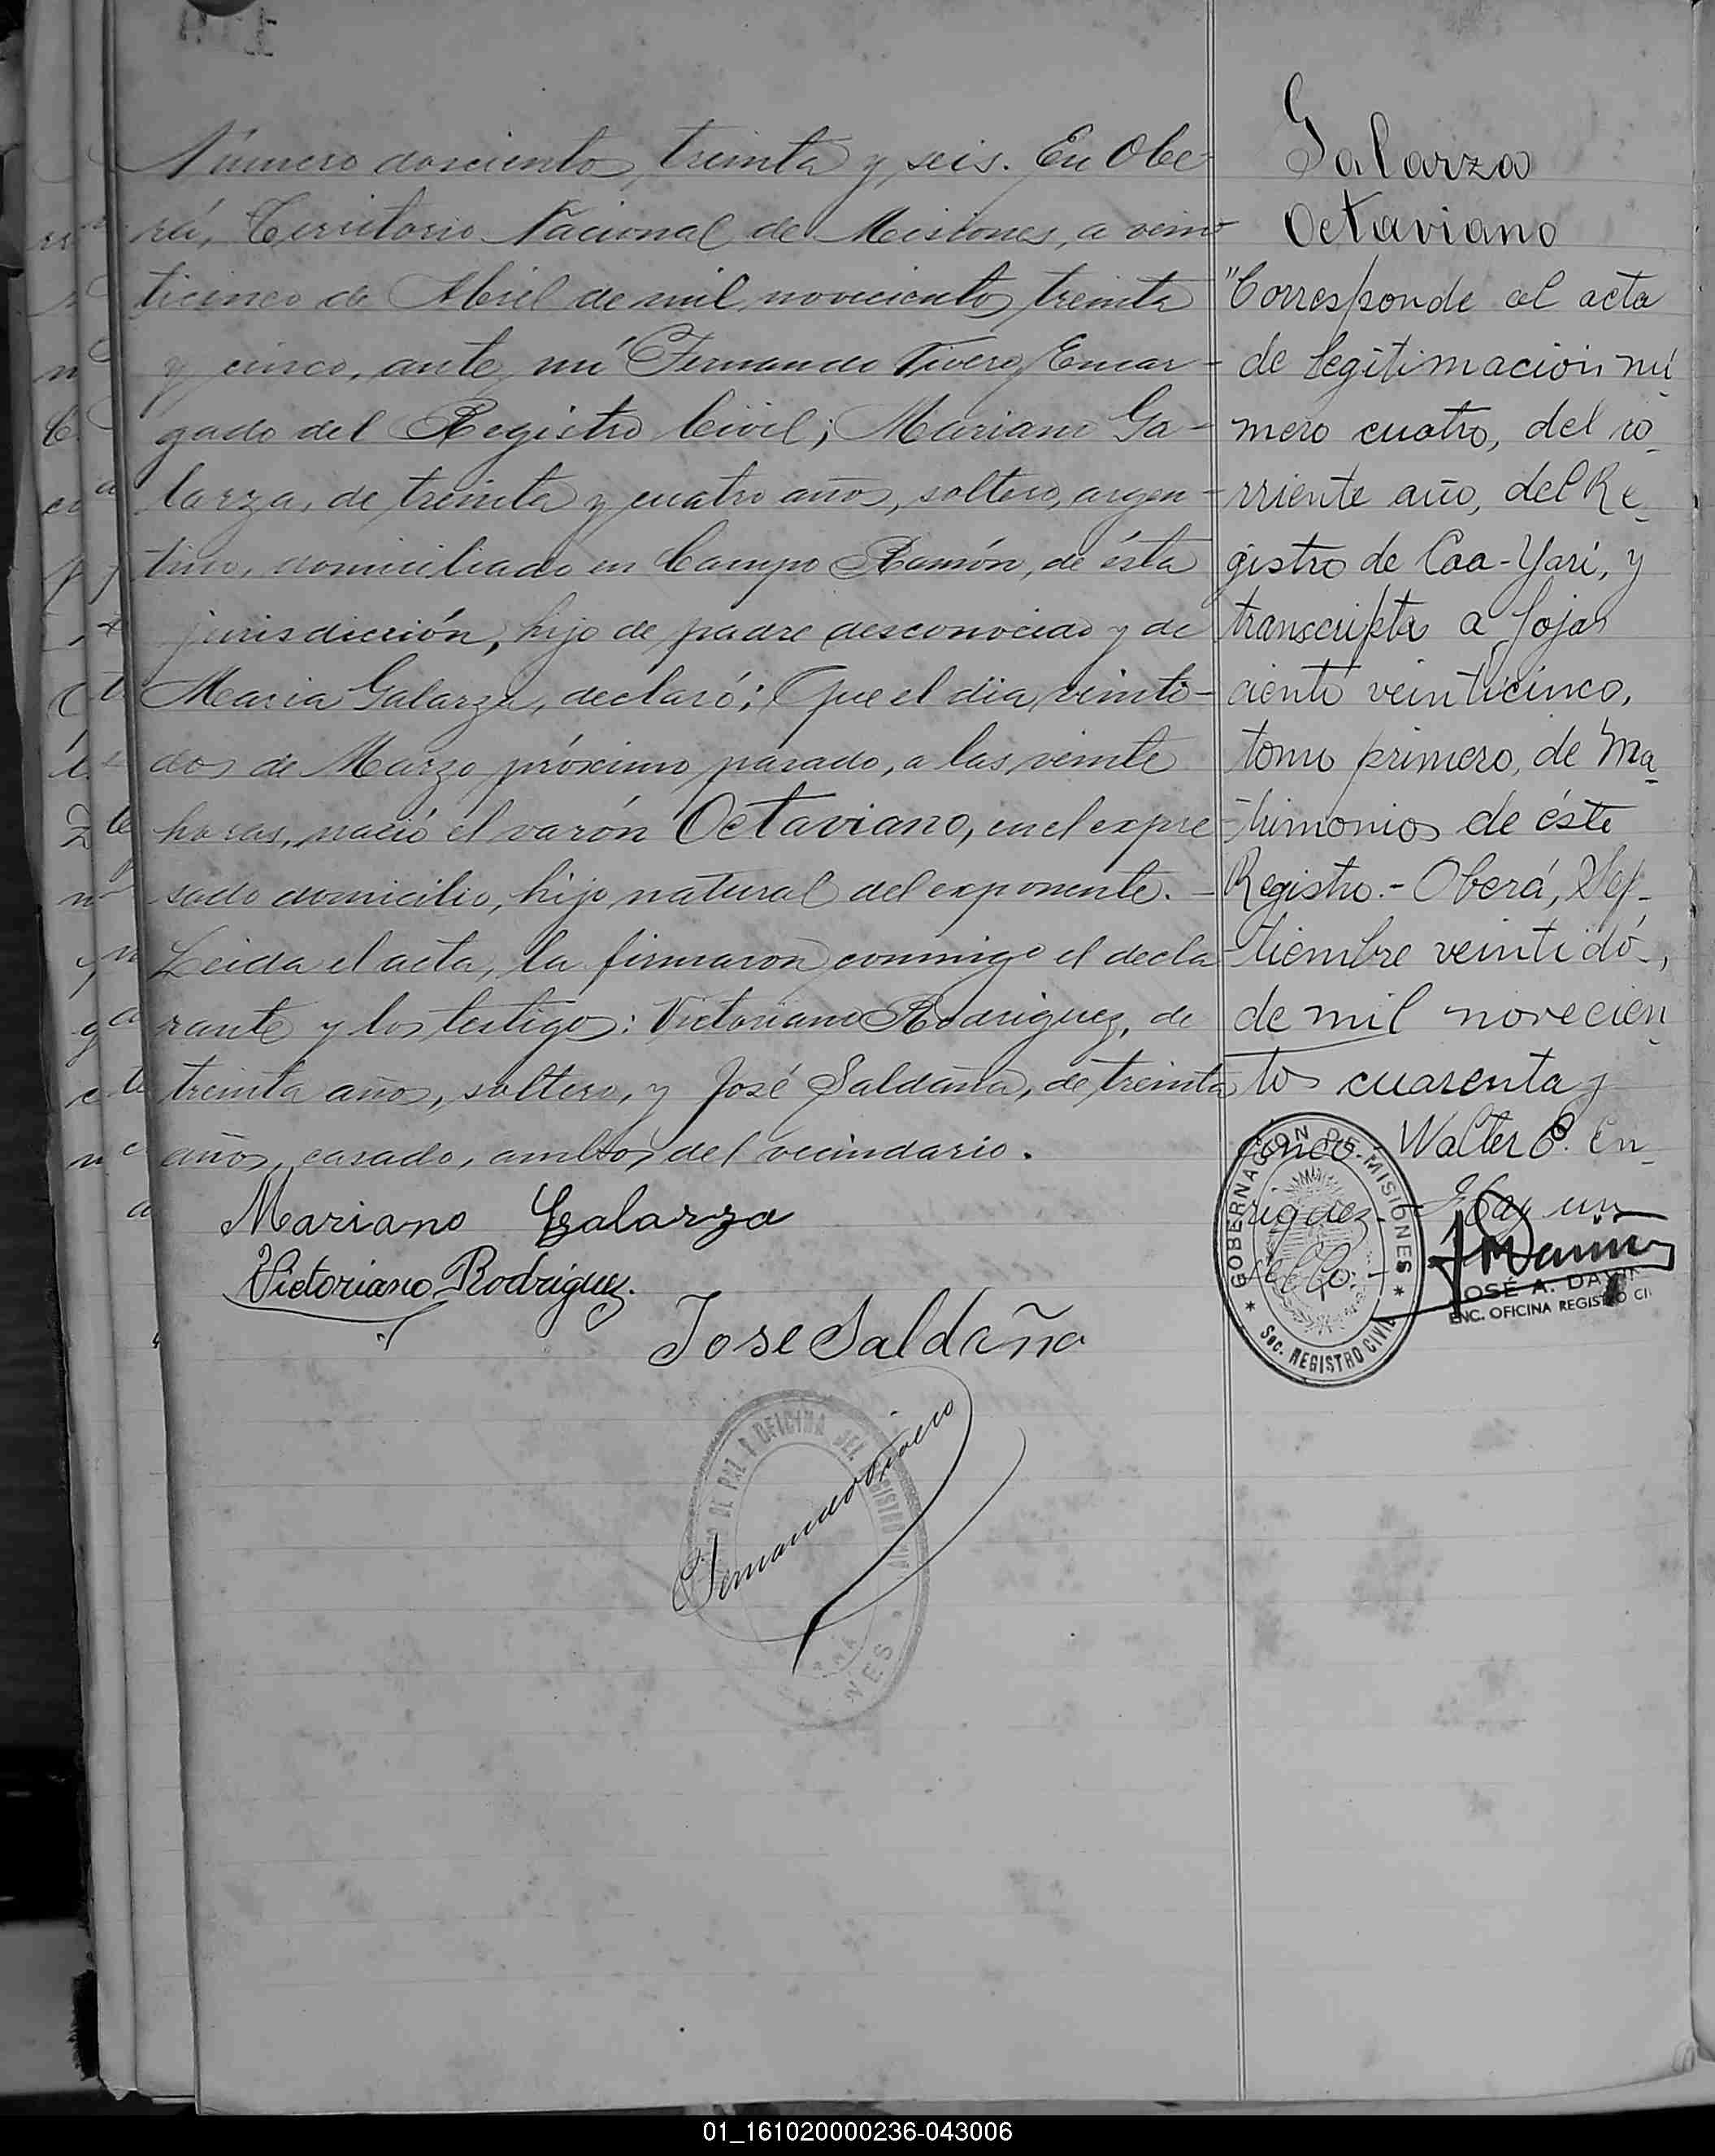 Número dosciento treinta y seis. En Obe-
rá, Territorio Nacional de Misiones, a vein-
ticinco de Abril de mil novecientos treinta
y cinco, ante mí Fernando Vivero, Encar-
gado del Registro Civil; Mariano Ga-
larza, de treinta y cuatro años, soltero, argen-
tino, domiciliado en Campo Ramón, de ésta
jurisdicción, hijo de padre desconocido y de
Maria Galarza, declaró: Que el dia veinti-
dos de Marzo próximo pasado, a las veinte
horas, nació el varón Octaviano, en el expre-
sado domicilio, hijo natural del exponente.-
Leida el acta, la firmaron conmigo el decla-
rante y los testigos: Victoriano Rodriguez, de
treinta años, soltero, y José Saldaña, de treinta
años, casado, ambos del vecindario.
Mariano Galarza
Victoriano Rodriguez.
Jose Saldaña
DE PAZ Y OFICINA DEL
Fernando Vivero
NES
Galarza
Octaviano
"Corresponde al acta
de legitimación nú-
mero cuatro, del co-
rriente año, del Re-
gistro de Caa-Yarí, y
transcripta a fojas
ciento veinticinco,
tomo primero, de Ma-
trimonios de éste
Registro.- Oberá, Sep-
tiembre veintidó-,
de mil novecien-
tos cuarenta y
cinco.- Walter E. En-
riquez.- Hay un
sello.-
GOBERNACION DE MISIONES
Sec. REGISTRO CIVIL
JOSÉ A. DA
ENC. OFICINA REGISTRO CI
01_161020000236-043006